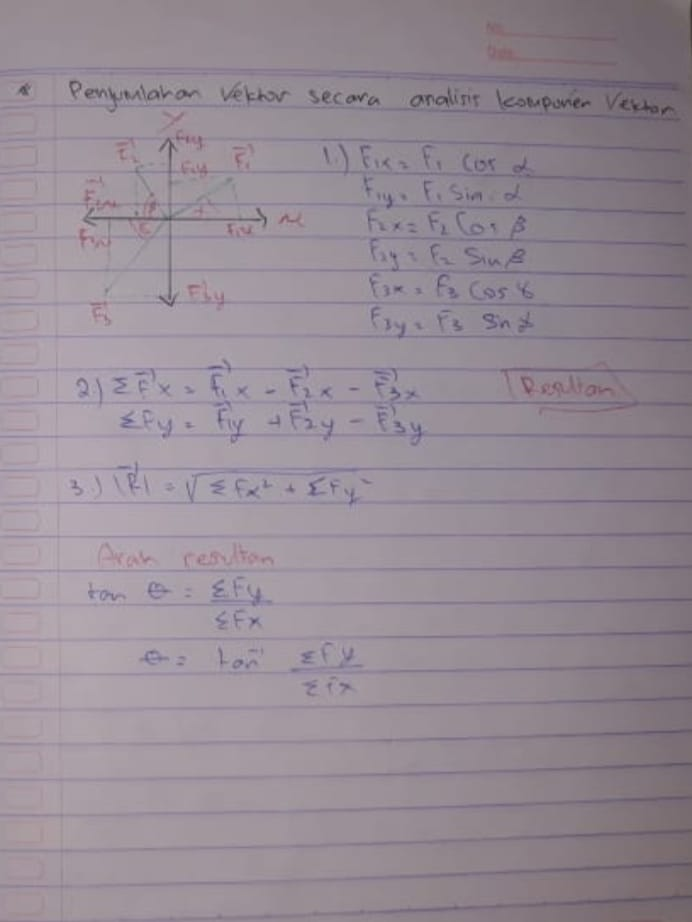 No.
Date
* Penjumlahan Vektor secara analisis komponen Vektor
Y
F₂y
F₁y
F₁
F₂
α
β
x
F₁x
F₂x
F₃x
F₃
F₃y
1.) F₁x = F₁ Cos α
F₁y = F₁ Sin α
F₂x = F₂ Cos β
F₂y = F₂ Sin β
F₃x = F₃ Cos γ
F₃y = F₃ Sin γ
2.) ΣF⃗x = F⃗₁x - F⃗₂x - F⃗₃x
Resultan
ΣFy = F⃗₁y + F⃗₂y - F⃗₃y
3.) |R⃗| = √ΣFx² + ΣFy²
Arah resultan
tan θ = ΣFy
ΣFx
θ = tan⁻¹ ΣFy
ΣFx